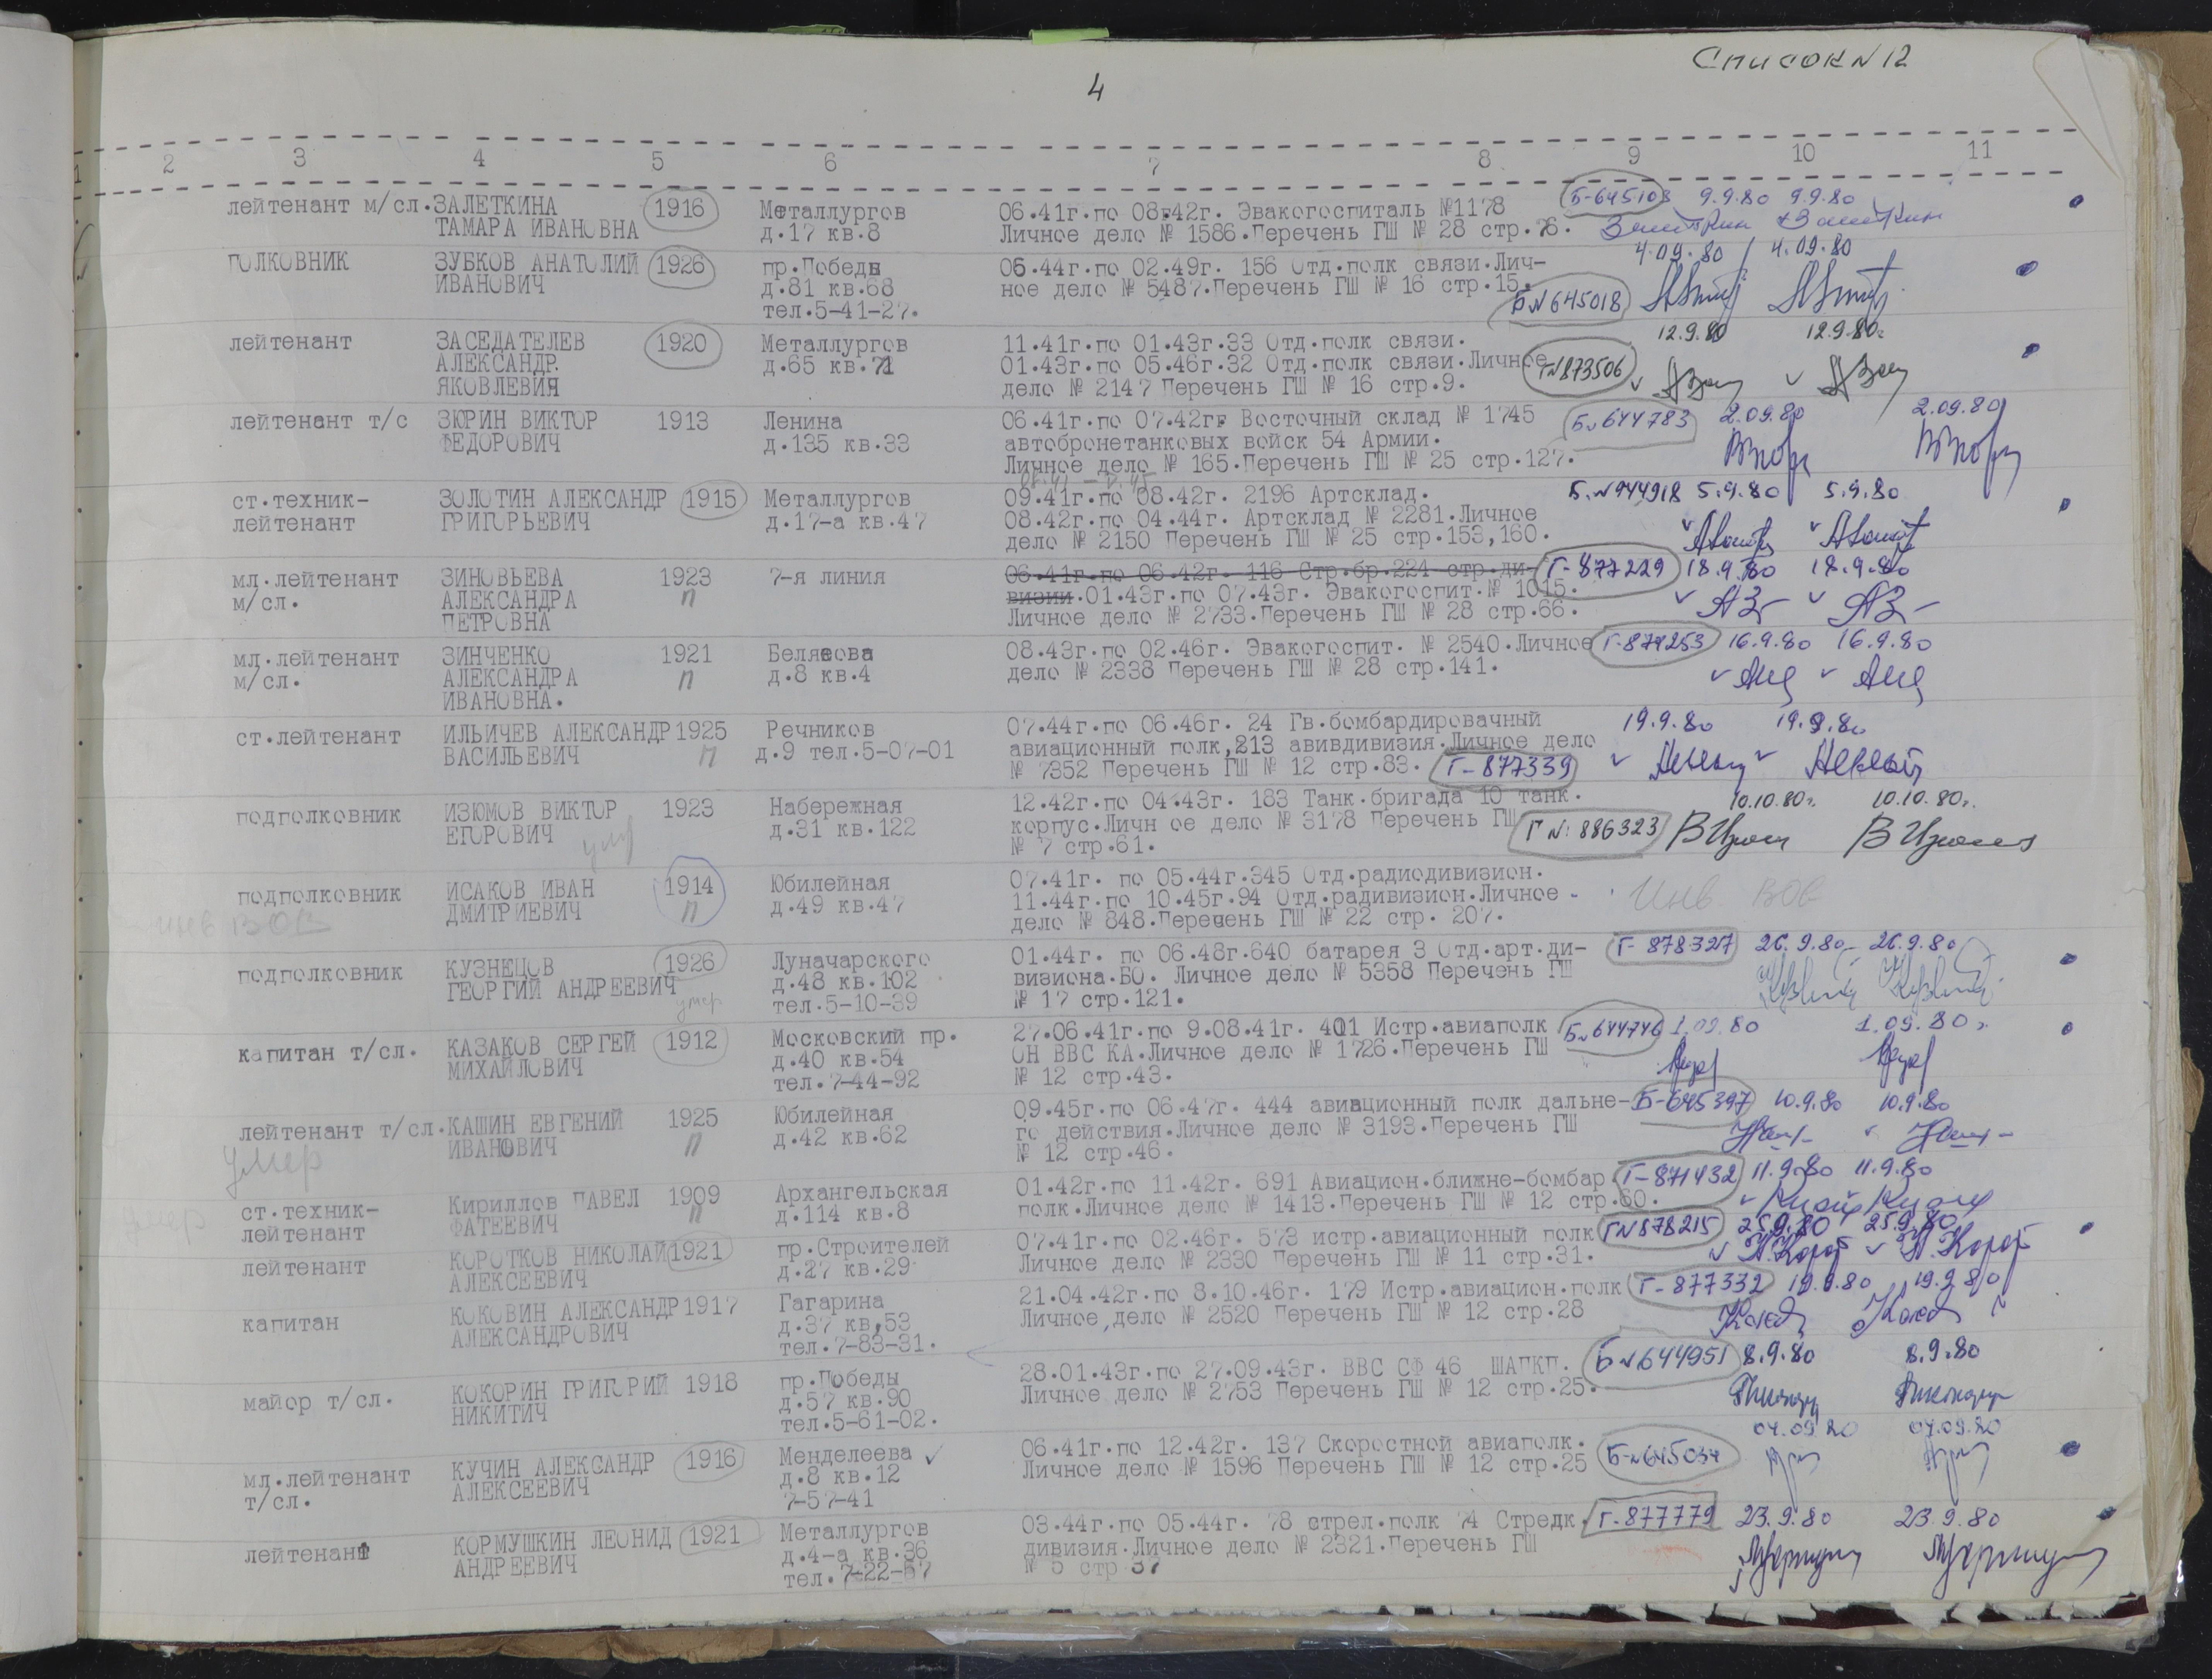 Список N 12
4
1 2 3 4 5 6 7 8 9 10 11
лейтенант м/сл. ЗАЛЕТКИНА 1916 Металлургов 06.41г.по 08.42г. Эвакогоспиталь №1178 Б-645103 9.9.80 9.9.80
ТАМАРА ИВАНОВНА д.17 кв.8 Личное дело № 1586.Перечень ГШ № 28 стр.76.
ПОЛКОВНИК ЗУБКОВ АНАТОЛИЙ 1926 пр.Победы 06.44г.по 02.49г. 156 Отд.полк связи.Лич- 4.09.80 4.09.80
ИВАНОВИЧ д.81 кв.68 ное дело № 5487.Перечень ГШ № 16 стр.15.
тел.5-41-27. Б N 645018
лейтенант ЗАСЕДАТЕЛЕВ 1920 Металлургов 11.41г.по 01.43г.33 Отд.полк связи. 12.9.80 12.9.80г
АЛЕКСАНДР. д.65 кв.71 01.43г.по 05.46г.32 Отд.полк связи.Личное Г N 873506
ЯКОВЛЕВИЯ дело № 2147 Перечень ГШ № 16 стр.9.
лейтенант т/с ЗЮРИН ВИКТОР 1913 Ленина 06.41г.по 07.42гг Восточный склад № 1745 Б N 644783 2.09.80 2.09.80
ФЕДОРОВИЧ д.135 кв.33 автобронетанковых войск 54 Армии.
Личное дело № 165.Перечень ГШ № 25 стр.127.
ст.техник- ЗОЛОТИН АЛЕКСАНДР 1915 Металлургов 09.41г.по 08.42г. 2196 Артсклад. Б. N 944918 5.9.80 5.9.80
лейтенант ГРИГОРЬЕВИЧ д.17-а кв.47 08.42г.по 04.44г. Артсклад № 2281.Личное
дело № 2150 Перечень ГШ № 25 стр.153,160.
мл.лейтенант ЗИНОВЬЕВА 1923 7-я линия 06.41г.по 06.42г. 116 Стр.бр.224 стр.ди- Г-877229 18.9.80 18.9.80
м/сл. АЛЕКСАНДРА п визии.01.43г.по 07.43г. Эвакогоспит.№ 1015.
ПЕТРОВНА Личное дело № 2733.Перечень ГШ № 28 стр.66.
мл.лейтенант ЗИНЧЕНКО 1921 Беляева 08.43г.по 02.46г. Эвакогоспит. № 2540.Личное Г-877253 16.9.80 16.9.80
м/сл. АЛЕКСАНДРА п д.8 кв.4 дело № 2338 Перечень ГШ № 28 стр.141.
ИВАНОВНА.
ст.лейтенант ИЛЬИЧЕВ АЛЕКСАНДР 1925 Речников 07.44г.по 06.46г. 24 Гв.бомбардировачный 19.9.80 19.9.80
ВАСИЛЬЕВИЧ п д.9 тел.5-07-01 авиационный полк,213 авивдивизия.Личное дело
№ 7352 Перечень ГШ № 12 стр.83. Г-877339
подполковник ИЗЮМОВ ВИКТОР 1923 Набережная 12.42г.по 04.43г. 183 Танк.бригада 10 танк. 10.10.80г. 10.10.80г.
ЕГОРОВИЧ д.31 кв.122 корпус.Личн ое дело № 3178 Перечень ГШ Г N: 886323
умер № 7 стр.61.
подполковник ИСАКОВ ИВАН 1914 Юбилейная 07.41г. по 05.44г.345 Отд.радиодивизион.
ДМИТРИЕВИЧ п д.49 кв.47 11.44г.по 10.45г.94 Отд.радивизион.Личное - Инв. ВОВ
инв ВОВ дело № 848.Перечень ГШ № 22 стр. 207.
подполковник КУЗНЕЦОВ 1926 Луначарского 01.44г. по 06.48г.640 батарея 3 Отд.арт.ди- Г-878327 26.9.80 26.9.80
ГЕОРГИЙ АНДРЕЕВИЧ д.48 кв.102 визиона.БО. Личное дело № 5358 Перечень ГШ
умер тел.5-10-39 № 17 стр.121.
капитан т/сл. КАЗАКОВ СЕРГЕЙ 1912 Московский пр. 27.06.41г.по 9.08.41г. 401 Истр.авиаполк Б N 644746 1.09.80 1.09.80г.
МИХАЙЛОВИЧ д.40 кв.54 ОН ВВС КА.Личное дело № 1726.Перечень ГШ
тел.7-44-92 № 12 стр.43.
лейтенант т/сл. КАШИН ЕВГЕНИЙ 1925 Юбилейная 09.45г.по 06.47г. 444 авиационный полк дальне- Б-645397 10.9.80 10.9.80
ИВАНОВИЧ п д.42 кв.62 го действия.Личное дело № 3193.Перечень ГШ
умер № 12 стр.46.
ст.техник- Кириллов ПАВЕЛ 1909 Архангельская 01.42г.по 11.42г. 691 Авиацион.ближне-бомбар. Г-871432 11.9.80 11.9.80
умер лейтенант ФАТЕЕВИЧ п д.114 кв.8 полк.Личное дело № 1413.Перечень ГШ № 12 стр.60.
лейтенант КОРОТКОВ НИКОЛАЙ 1921 пр.Строителей 07.41г.по 02.46г. 573 истр.авиационный полк Г N 878215 25.9.80 25.9.80
АЛЕКСЕЕВИЧ д.27 кв.29 Личное дело № 2330 Перечень ГШ № 11 стр.31. Н.Корот Н.Корот
капитан КОКОВИН АЛЕКСАНДР 1917 Гагарина 21.04.42г.по 8.10.46г. 179 Истр.авиацион.полк Г-877332 19.9.80 19.9.80
АЛЕКСАНДРОВИЧ д.37 кв,53 Личное,дело № 2520 Перечень ГШ № 12 стр.28
тел.7-83-31.
майор т/сл. КОКОРИН ГРИГОРИЙ 1918 пр.Победы 28.01.43г.по 27.09.43г. ВВС СФ 46 ШАПКП. Б N 644951 8.9.80 8.9.80
НИКИТИЧ д.57 кв.90 Личное дело № 2753 Перечень ГШ № 12 стр.25.
тел.5-61-02.
мл.лейтенант КУЧИН АЛЕКСАНДР 1916 Менделеева 06.41г.по 12.42г. 137 Скоростной авиаполк. Б-N 645034 04.09.80 04.09.80
т/сл. АЛЕКСЕЕВИЧ д.8 кв.12 Личное дело № 1596 Перечень ГШ № 12 стр.25
7-57-41
лейтенант КОРМУШКИН ЛЕОНИД 1921 Металлургов 03.44г.по 05.44г. 78 стрел.полк 74 Стредк. Г-877779 23.9.80 23.9.80
АНДРЕЕВИЧ д.4-а кв.36 дивизия.Личное дело № 2321.Перечень ГШ
тел.7-22-57 № 5 стр 37